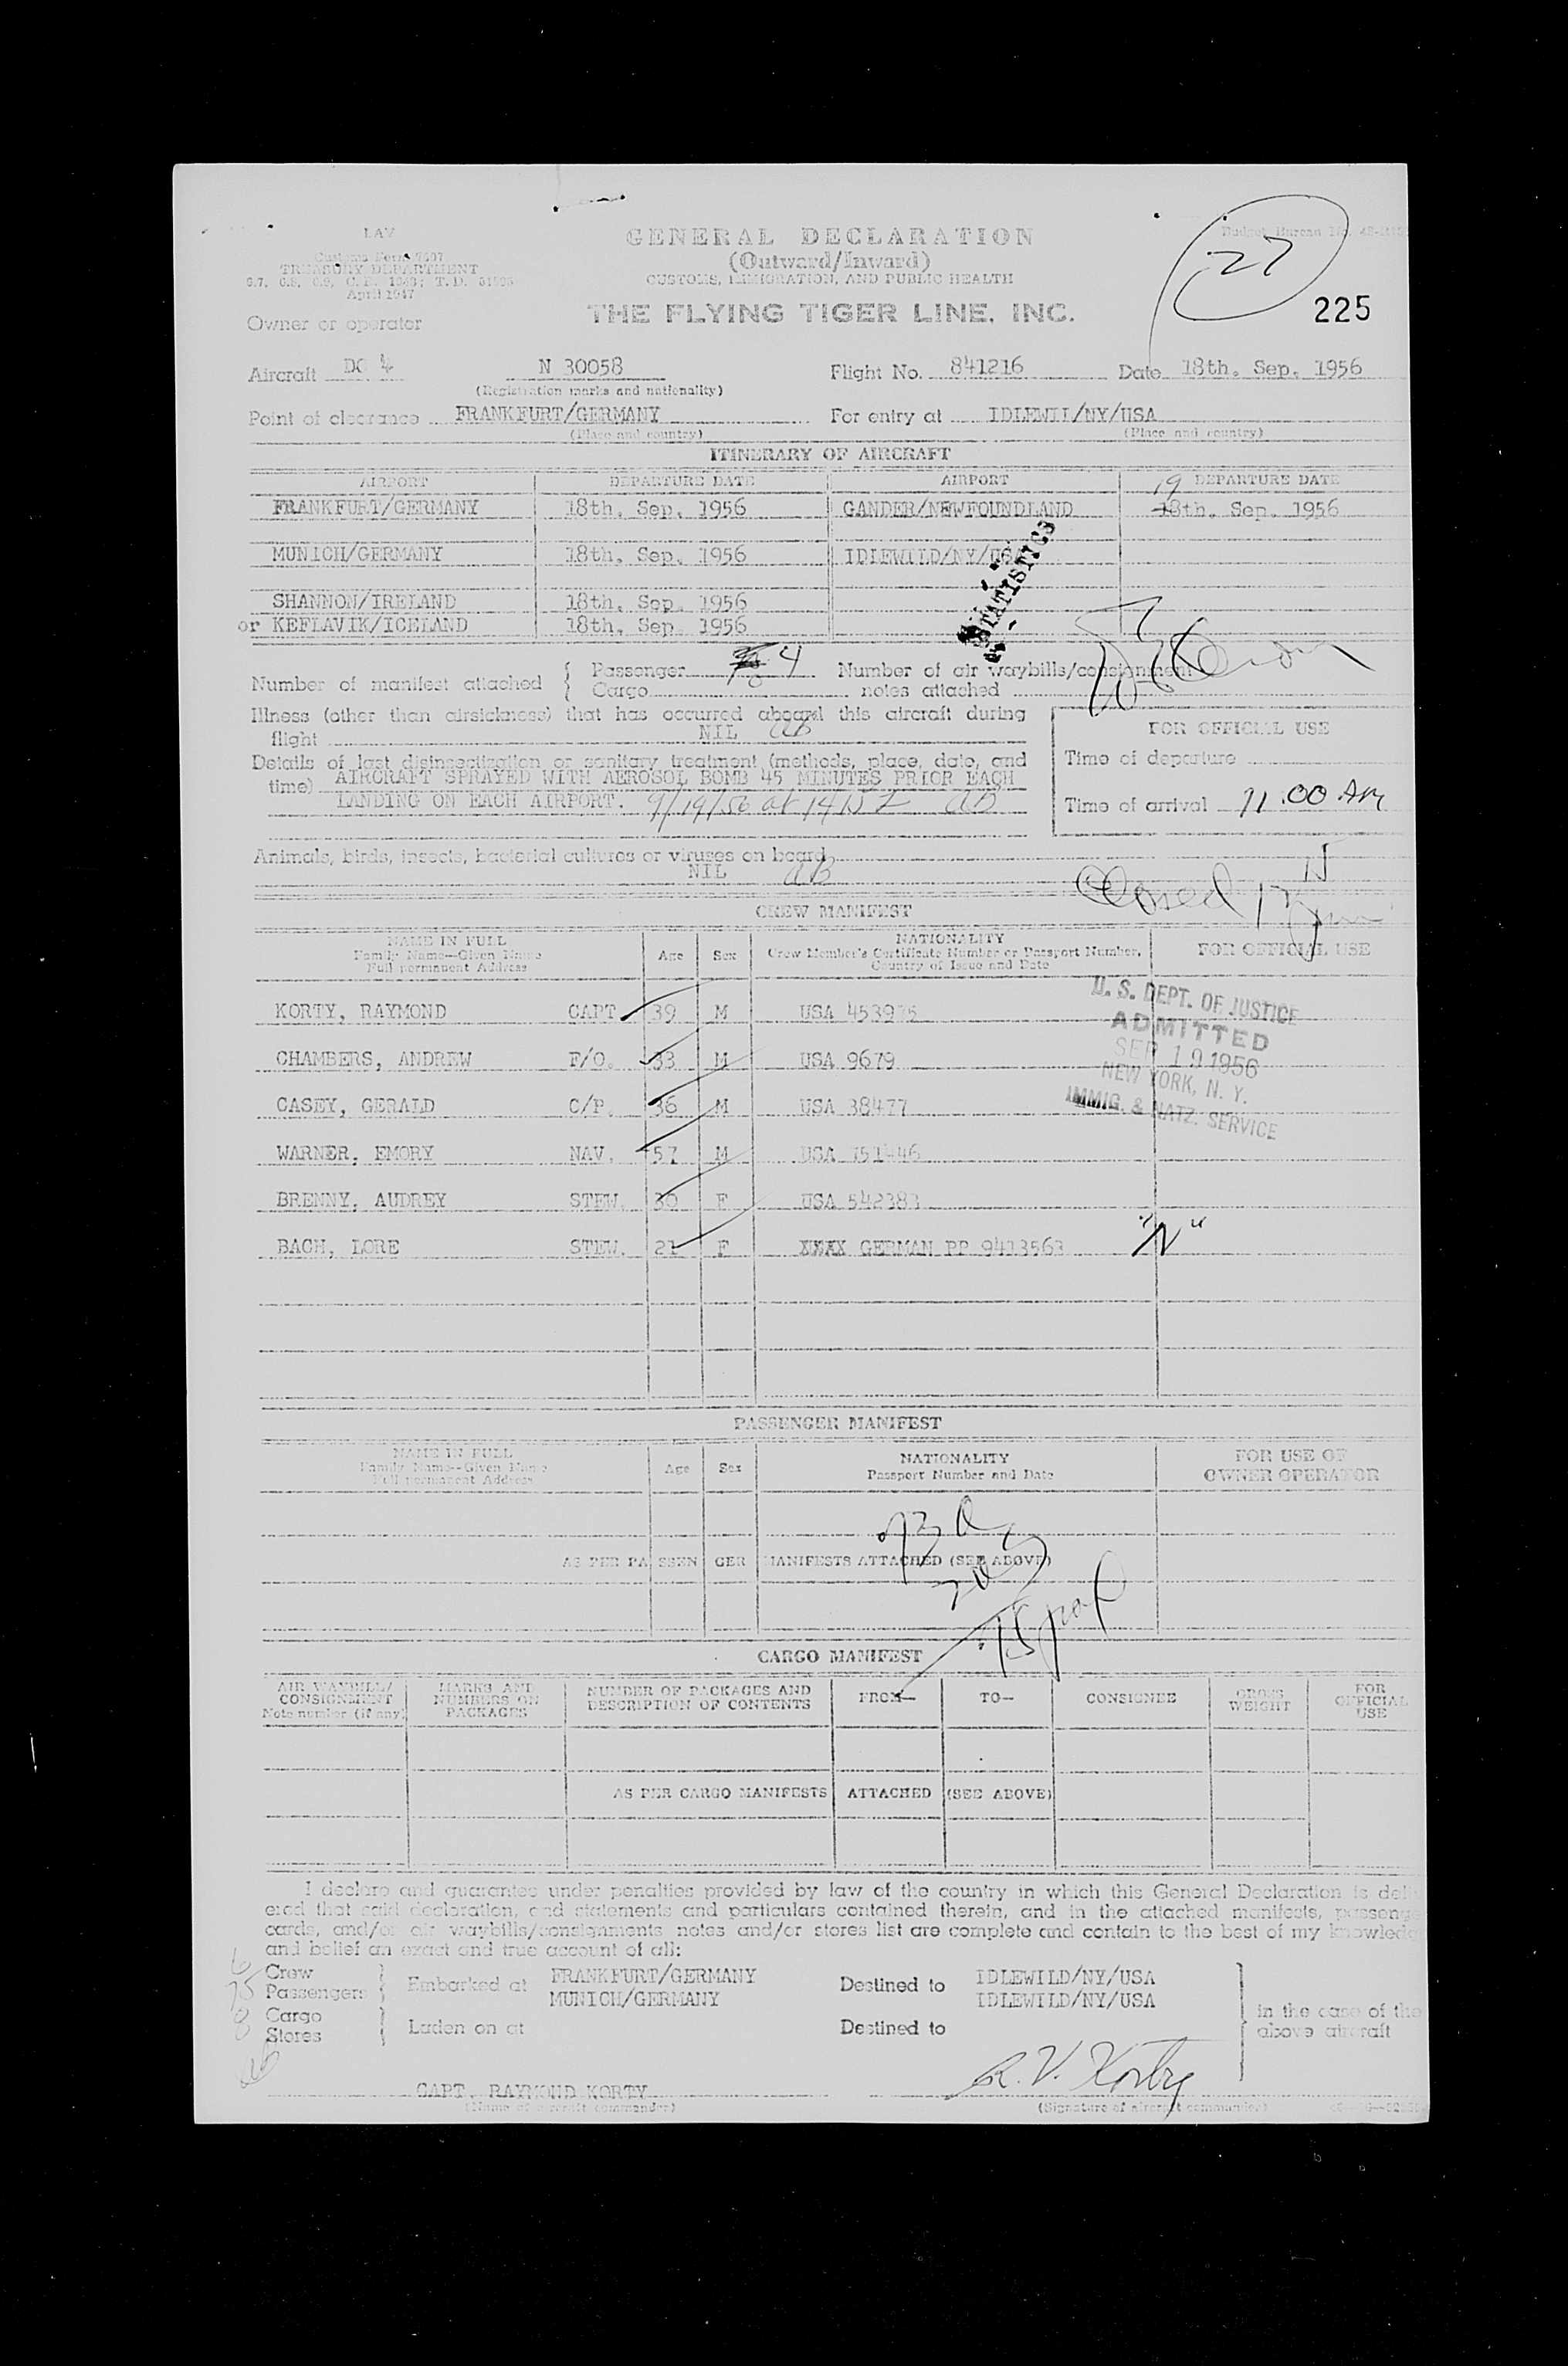 LAV
GENERAL DECLARATION
Customs Form 7507
(Outward/Inward)
TREASURY DEPARTMENT
CUSTOMS, IMMIGRATION, AND PUBLIC HEALTH
April 1947
27
THE FLYING TIGER LINE, INC.
225
Owner or operator
Aircraft DC 4 N 30058 Flight No. 841216 Date 18th. Sep. 1956
(Registration marks and nationality)
Point of clearance FRANKFURT/GERMANY For entry at IDLEWIL/NY/USA
(Place and country) (Place and country)
ITINERARY OF AIRCRAFT
AIRPORT DEPARTURE DATE AIRPORT DEPARTURE DATE
19
FRANKFURT/GERMANY 18th. Sep. 1956 GANDER/NEWFOUNDLAND 18th. Sep. 1956
MUNICH/GERMANY 18th. Sep. 1956 IDLEWILD/NY/USA
STATISTICS
SHANNON/IRELAND 18th. Sep. 1956
or KEFLAVIK/ICELAND 18th. Sep. 1956
Number of manifest attached { Passenger 4 Number of air waybills/consignment
Cargo notes attached
Illness (other than airsickness) that has occurred aboard this aircraft during
flight NIL AB
FOR OFFICIAL USE
Details of last disinsectization or sanitary treatment (methods, place, date, and
time) AIRCRAFT SPRAYED WITH AEROSOL BOMB 45 MINUTES PRIOR EACH
LANDING ON EACH AIRPORT. 9/19/56 at 1415 Z AB
Time of departure
Time of arrival 11.00 AM
Animals, birds, insects, bacterial cultures or viruses on board
NIL AB
Closed
CREW MANIFEST
NAME IN FULL
Family Name—Given Name
Full permanent Address
Age Sex
NATIONALITY
Crew Member's Certificate Number or Passport Number,
Country of Issue and Date
FOR OFFICIAL USE
KORTY, RAYMOND CAPT 39 M USA 453975
CHAMBERS, ANDREW F/O. 33 M USA 9679
CASEY, GERALD C/P. 36 M USA 38477
WARNER, EMORY NAV. 57 M USA 751446
BRENNY, AUDREY STEW. 30 F USA 542383
BACH, LORE STEW. 21 F GERMAN PP 9413563 "N"
U. S. DEPT. OF JUSTICE
ADMITTED
SEP 19 1956
NEW YORK, N. Y.
IMMIG. & NATZ. SERVICE
PASSENGER MANIFEST
NAME IN FULL
Family Name—Given Name
Full permanent Address
Age Sex
NATIONALITY
Passport Number and Date
FOR USE OF
OWNER OPERATOR
AS PER PASSENGER MANIFESTS ATTACHED (SEE ABOVE)
CARGO MANIFEST
AIR WAYBILL/
CONSIGNMENT
Note number (if any)
MARKS AND
NUMBERS ON
PACKAGES
NUMBER OF PACKAGES AND
DESCRIPTION OF CONTENTS
FROM— TO— CONSIGNEE
GROSS
WEIGHT
FOR
OFFICIAL
USE
AS PER CARGO MANIFESTS ATTACHED (SEE ABOVE)
I declare and guarantee under penalties provided by law of the country in which this General Declaration is deli
ered that said declaration, and statements and particulars contained therein, and in the attached manifests, passenge
cards, and/or air waybills/consignments notes and/or stores list are complete and contain to the best of my knowledg
and belief an exact and true account of all:
6 Crew
75 Passengers
Embarked at FRANKFURT/GERMANY Destined to IDLEWILD/NY/USA
MUNICH/GERMANY IDLEWILD/NY/USA
0 Cargo
0 Stores
Laden on at Destined to
in the case of the
above aircraft
AB
CAPT. RAYMOND KORTY R. V. Korty
(Name of aircraft commander) (Signature of aircraft commander)